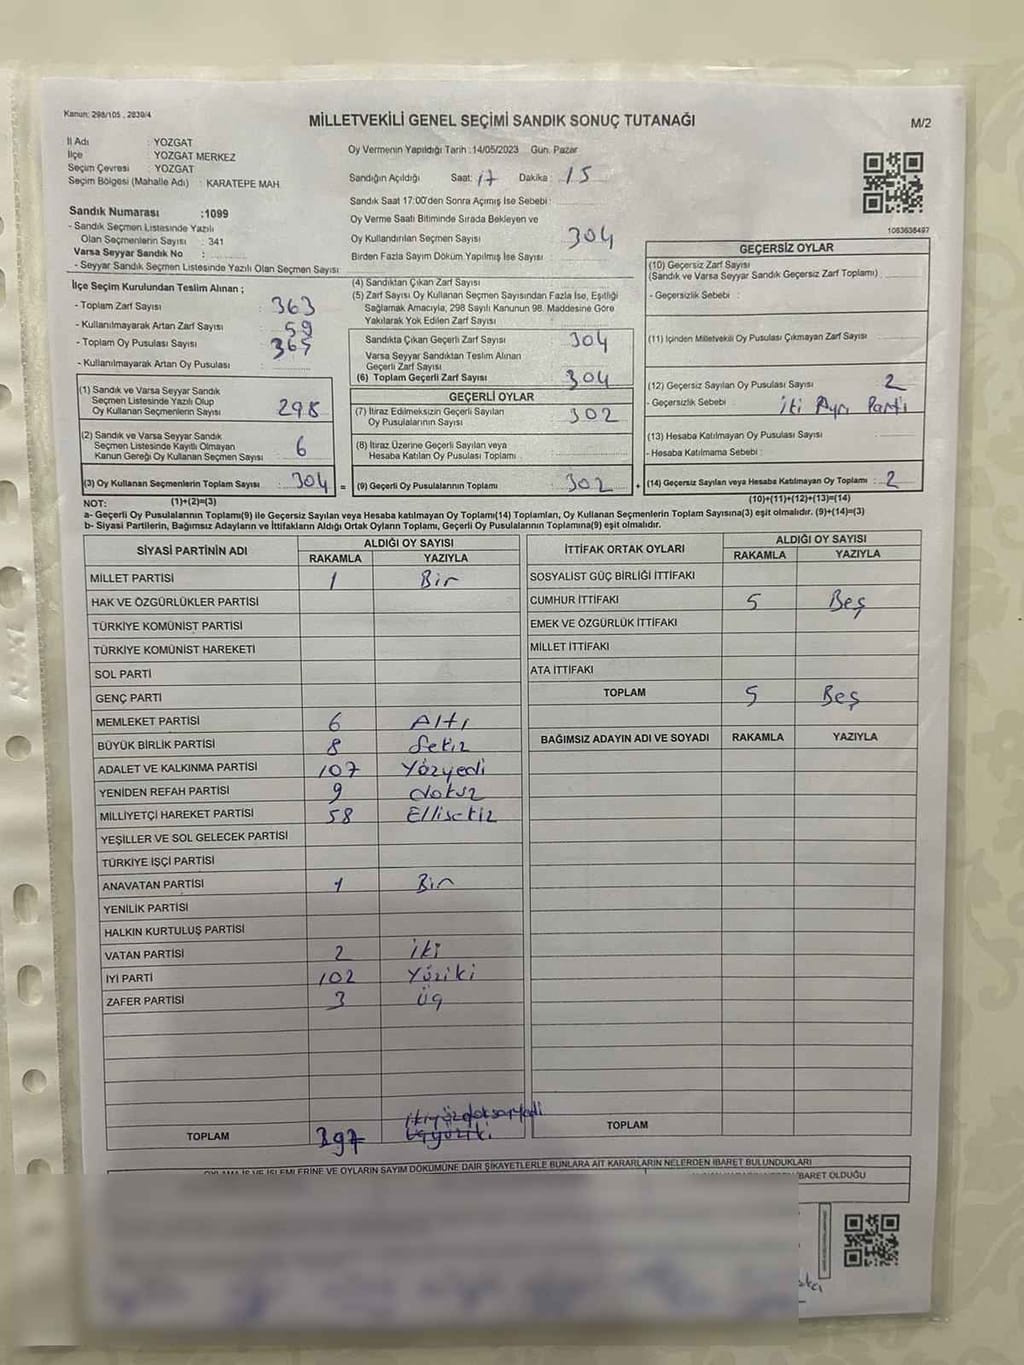 Kanun: 298/105 , 2839/4
MİLLETVEKİLİ GENEL SEÇİMİ SANDIK SONUÇ TUTANAĞI
M/2
İl Adı : YOZGAT
İlçe : YOZGAT MERKEZ
Seçim Çevresi : YOZGAT
Seçim Bölgesi (Mahalle Adı) : KARATEPE MAH
Oy Vermenin Yapıldığı Tarih :14/05/2023 Gün: Pazar
Sandığın Açıldığı Saat: 17 Dakika : 15
Sandık Saat 17:00'den Sonra Açımış İse Sebebi :
Sandık Numarası :1099
- Sandık Seçmen Listesinde Yazılı
Olan Seçmenlerin Sayısı : 341
Varsa Seyyar Sandık No :
- Seyyar Sandık Seçmen Listesinde Yazılı Olan Seçmen Sayısı :
Oy Verme Saati Bitiminde Sırada Bekleyen ve
Oy Kullandırılan Seçmen Sayısı 304
Birden Fazla Sayım Döküm Yapılmış İse Sayısı
1083638497
İlçe Seçim Kurulundan Teslim Alınan ;
- Toplam Zarf Sayısı 363
- Kullanılmayarak Artan Zarf Sayısı 59
- Toplam Oy Pusulası Sayısı 365
- Kullanılmayarak Artan Oy Pusulası
(1) Sandık ve Varsa Seyyar Sandık
Seçmen Listesinde Yazılı Olup
Oy Kullanan Seçmenlerin Sayısı 298
(2) Sandık ve Varsa Seyyar Sandık
Seçmen Listesinde Kayıtlı Olmayan
Kanun Gereği Oy Kullanan Seçmen Sayısı 6
(3) Oy Kullanan Seçmenlerin Toplam Sayısı : 304
(4) Sandıktan Çıkan Zarf Sayısı
(5) Zarf Sayısı Oy Kullanan Seçmen Sayısından Fazla İse, Eşitliği
Sağlamak Amacıyla, 298 Sayılı Kanunun 98. Maddesine Göre
Yakılarak Yok Edilen Zarf Sayısı
Sandıkta Çıkan Geçerli Zarf Sayısı 304
Varsa Seyyar Sandıktan Teslim Alınan
Geçerli Zarf Sayısı
(6) Toplam Geçerli Zarf Sayısı 304
GEÇERLİ OYLAR
(7) İtiraz Edilmeksizin Geçerli Sayılan
Oy Pusulalarının Sayısı 302
(8) İtiraz Üzerine Geçerli Sayılan veya
Hesaba Katılan Oy Pusulası Toplamı
= (9) Geçerli Oy Pusulalarının Toplamı 302
GEÇERSİZ OYLAR
(10) Geçersiz Zarf Sayısı
(Sandık ve Varsa Seyyar Sandık Geçersiz Zarf Toplamı)
- Geçersizlik Sebebi :
(11) İçinden Milletvekili Oy Pusulası Çıkmayan Zarf Sayısı
(12) Geçersiz Sayılan Oy Pusulası Sayısı 2
- Geçersizlik Sebebi : İki Ayrı Parti
(13) Hesaba Katılmayan Oy Pusulası Sayısı
- Hesaba Katılmama Sebebi :
+ (14) Geçersiz Sayılan veya Hesaba Katılmayan Oy Toplamı : 2
NOT: (1)+(2)=(3)
(10)+(11)+(12)+(13)=(14)
a- Geçerli Oy Pusulalarının Toplamı(9) ile Geçersiz Sayılan veya Hesaba katılmayan Oy Toplamı(14) Toplamları, Oy Kullanan Seçmenlerin Toplam Sayısına(3) eşit olmalıdır. (9)+(14)=(3)
b- Siyasi Partilerin, Bağımsız Adayların ve İttifakların Aldığı Ortak Oyların Toplamı, Geçerli Oy Pusulalarının Toplamına(9) eşit olmalıdır.
SİYASİ PARTİNİN ADI
ALDIĞI OY SAYISI
RAKAMLA YAZIYLA
MİLLET PARTİSİ 1 Bir
HAK VE ÖZGÜRLÜKLER PARTİSİ
TÜRKİYE KOMÜNİST PARTİSİ
TÜRKİYE KOMÜNİST HAREKETİ
SOL PARTİ
GENÇ PARTİ
MEMLEKET PARTİSİ 6 Altı
BÜYÜK BİRLİK PARTİSİ 8 Sekiz
ADALET VE KALKINMA PARTİSİ 107 Yüzyedi
YENİDEN REFAH PARTİSİ 9 dokuz
MİLLİYETÇİ HAREKET PARTİSİ 58 Ellisekiz
YEŞİLLER VE SOL GELECEK PARTİSİ
TÜRKİYE İŞÇİ PARTİSİ
ANAVATAN PARTİSİ 1 Bir
YENİLİK PARTİSİ
HALKIN KURTULUŞ PARTİSİ
VATAN PARTİSİ 2 iki
İYİ PARTİ 102 Yüziki
ZAFER PARTİSİ 3 Üç
TOPLAM 297 ikiyüzdoksanyedi
İTTİFAK ORTAK OYLARI
ALDIĞI OY SAYISI
RAKAMLA YAZIYLA
SOSYALİST GÜÇ BİRLİĞİ İTTİFAKI
CUMHUR İTTİFAKI 5 Beş
EMEK VE ÖZGÜRLÜK İTTİFAKI
MİLLET İTTİFAKI
ATA İTTİFAKI
TOPLAM 5 Beş
BAĞIMSIZ ADAYIN ADI VE SOYADI RAKAMLA YAZIYLA
TOPLAM
İŞLEMLERİNE VE OYLARIN SAYIM DÖKÜMÜNE DAİR ŞİKAYETLERLE BUNLARA AİT KARARLARIN NELERDEN İBARET BULUNDUKLARI
İBARET OLDUĞU